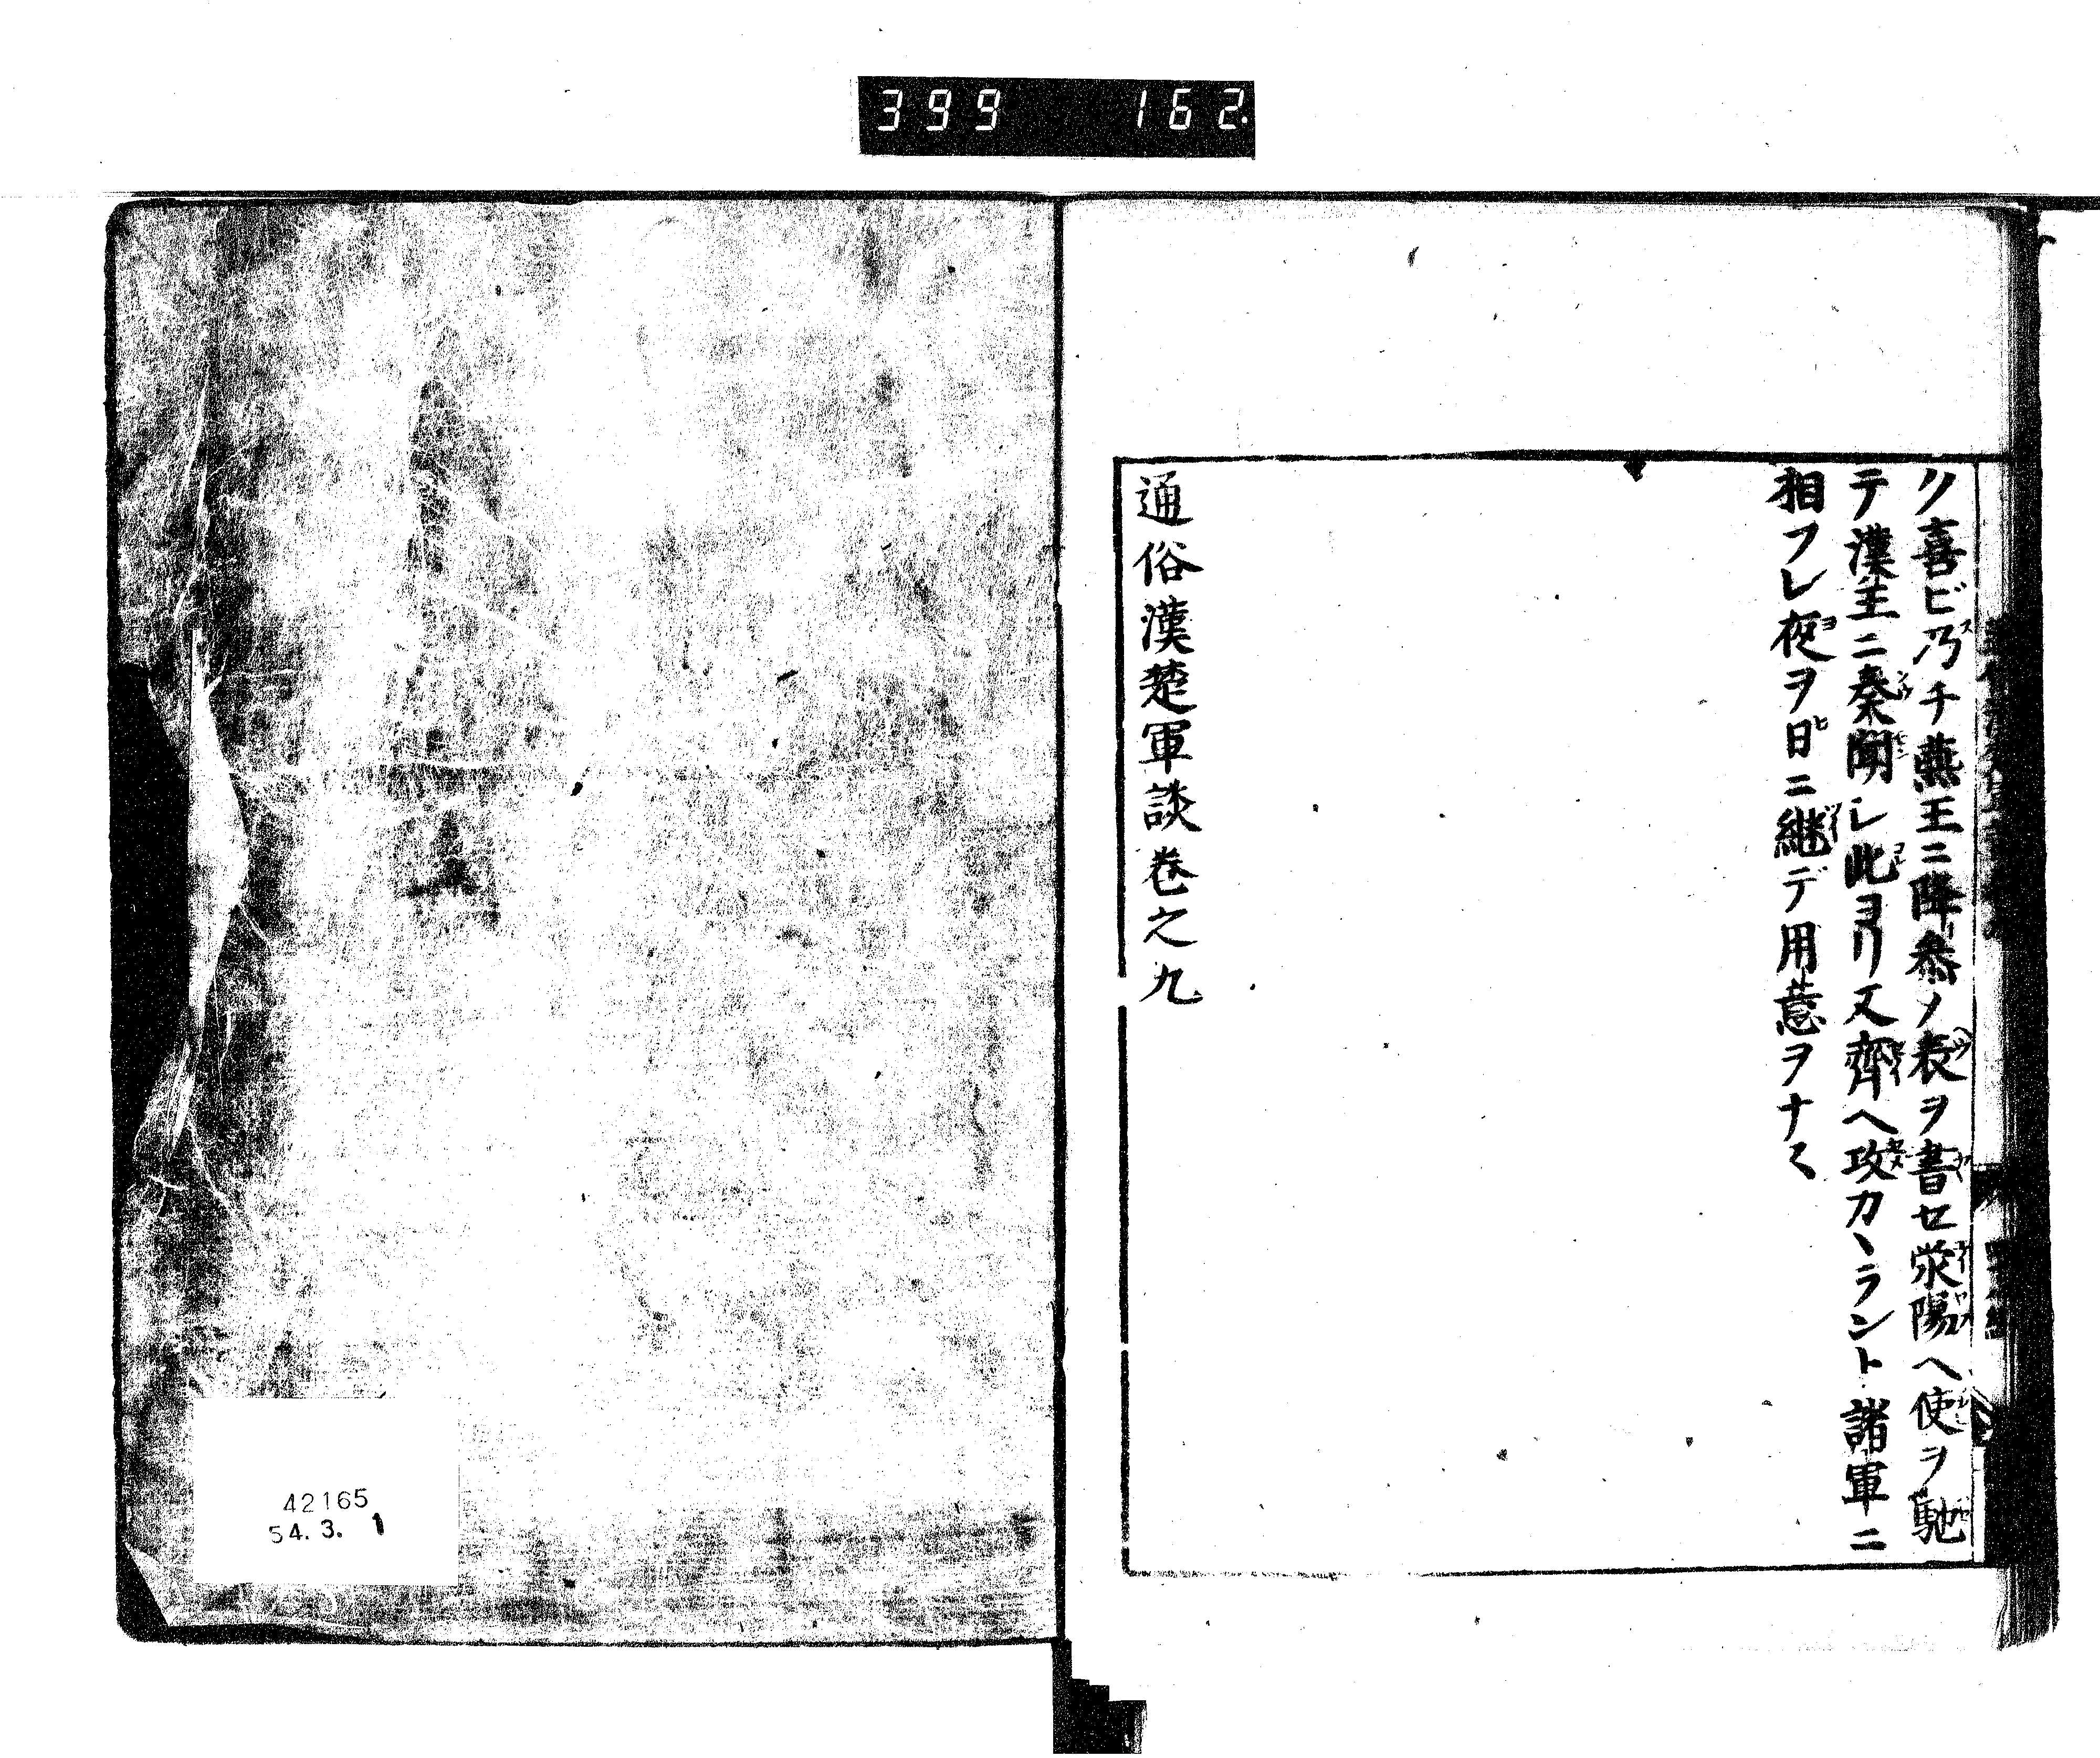 399 162.
ク喜ビ乃チ燕王ニ降参ノ表ヲ書セ滎陽ヘ使ヲ馳
テ漢王ニ奏聞シ此ヨリ又齊ヘ攻カヽラント諸軍ニ
相フレ夜ヲ日ニ継デ用意ヲナス
通俗漢楚軍談巻之九
42165
54. 3. 1